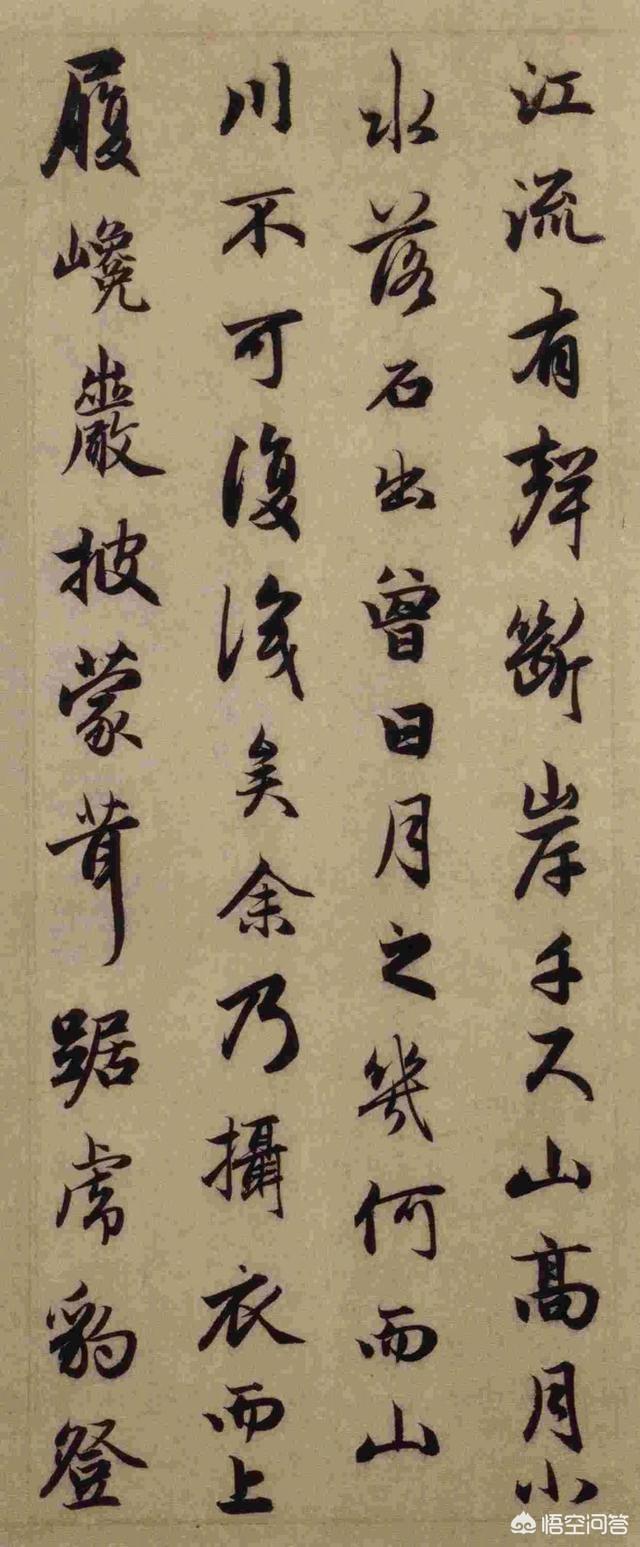 江流有聲斷岸千尺山高月小
水落石出曾日月之幾何而山
川不可復識矣余乃攝衣而上
履巉巖披蒙茸踞虎豹登
悟空问答